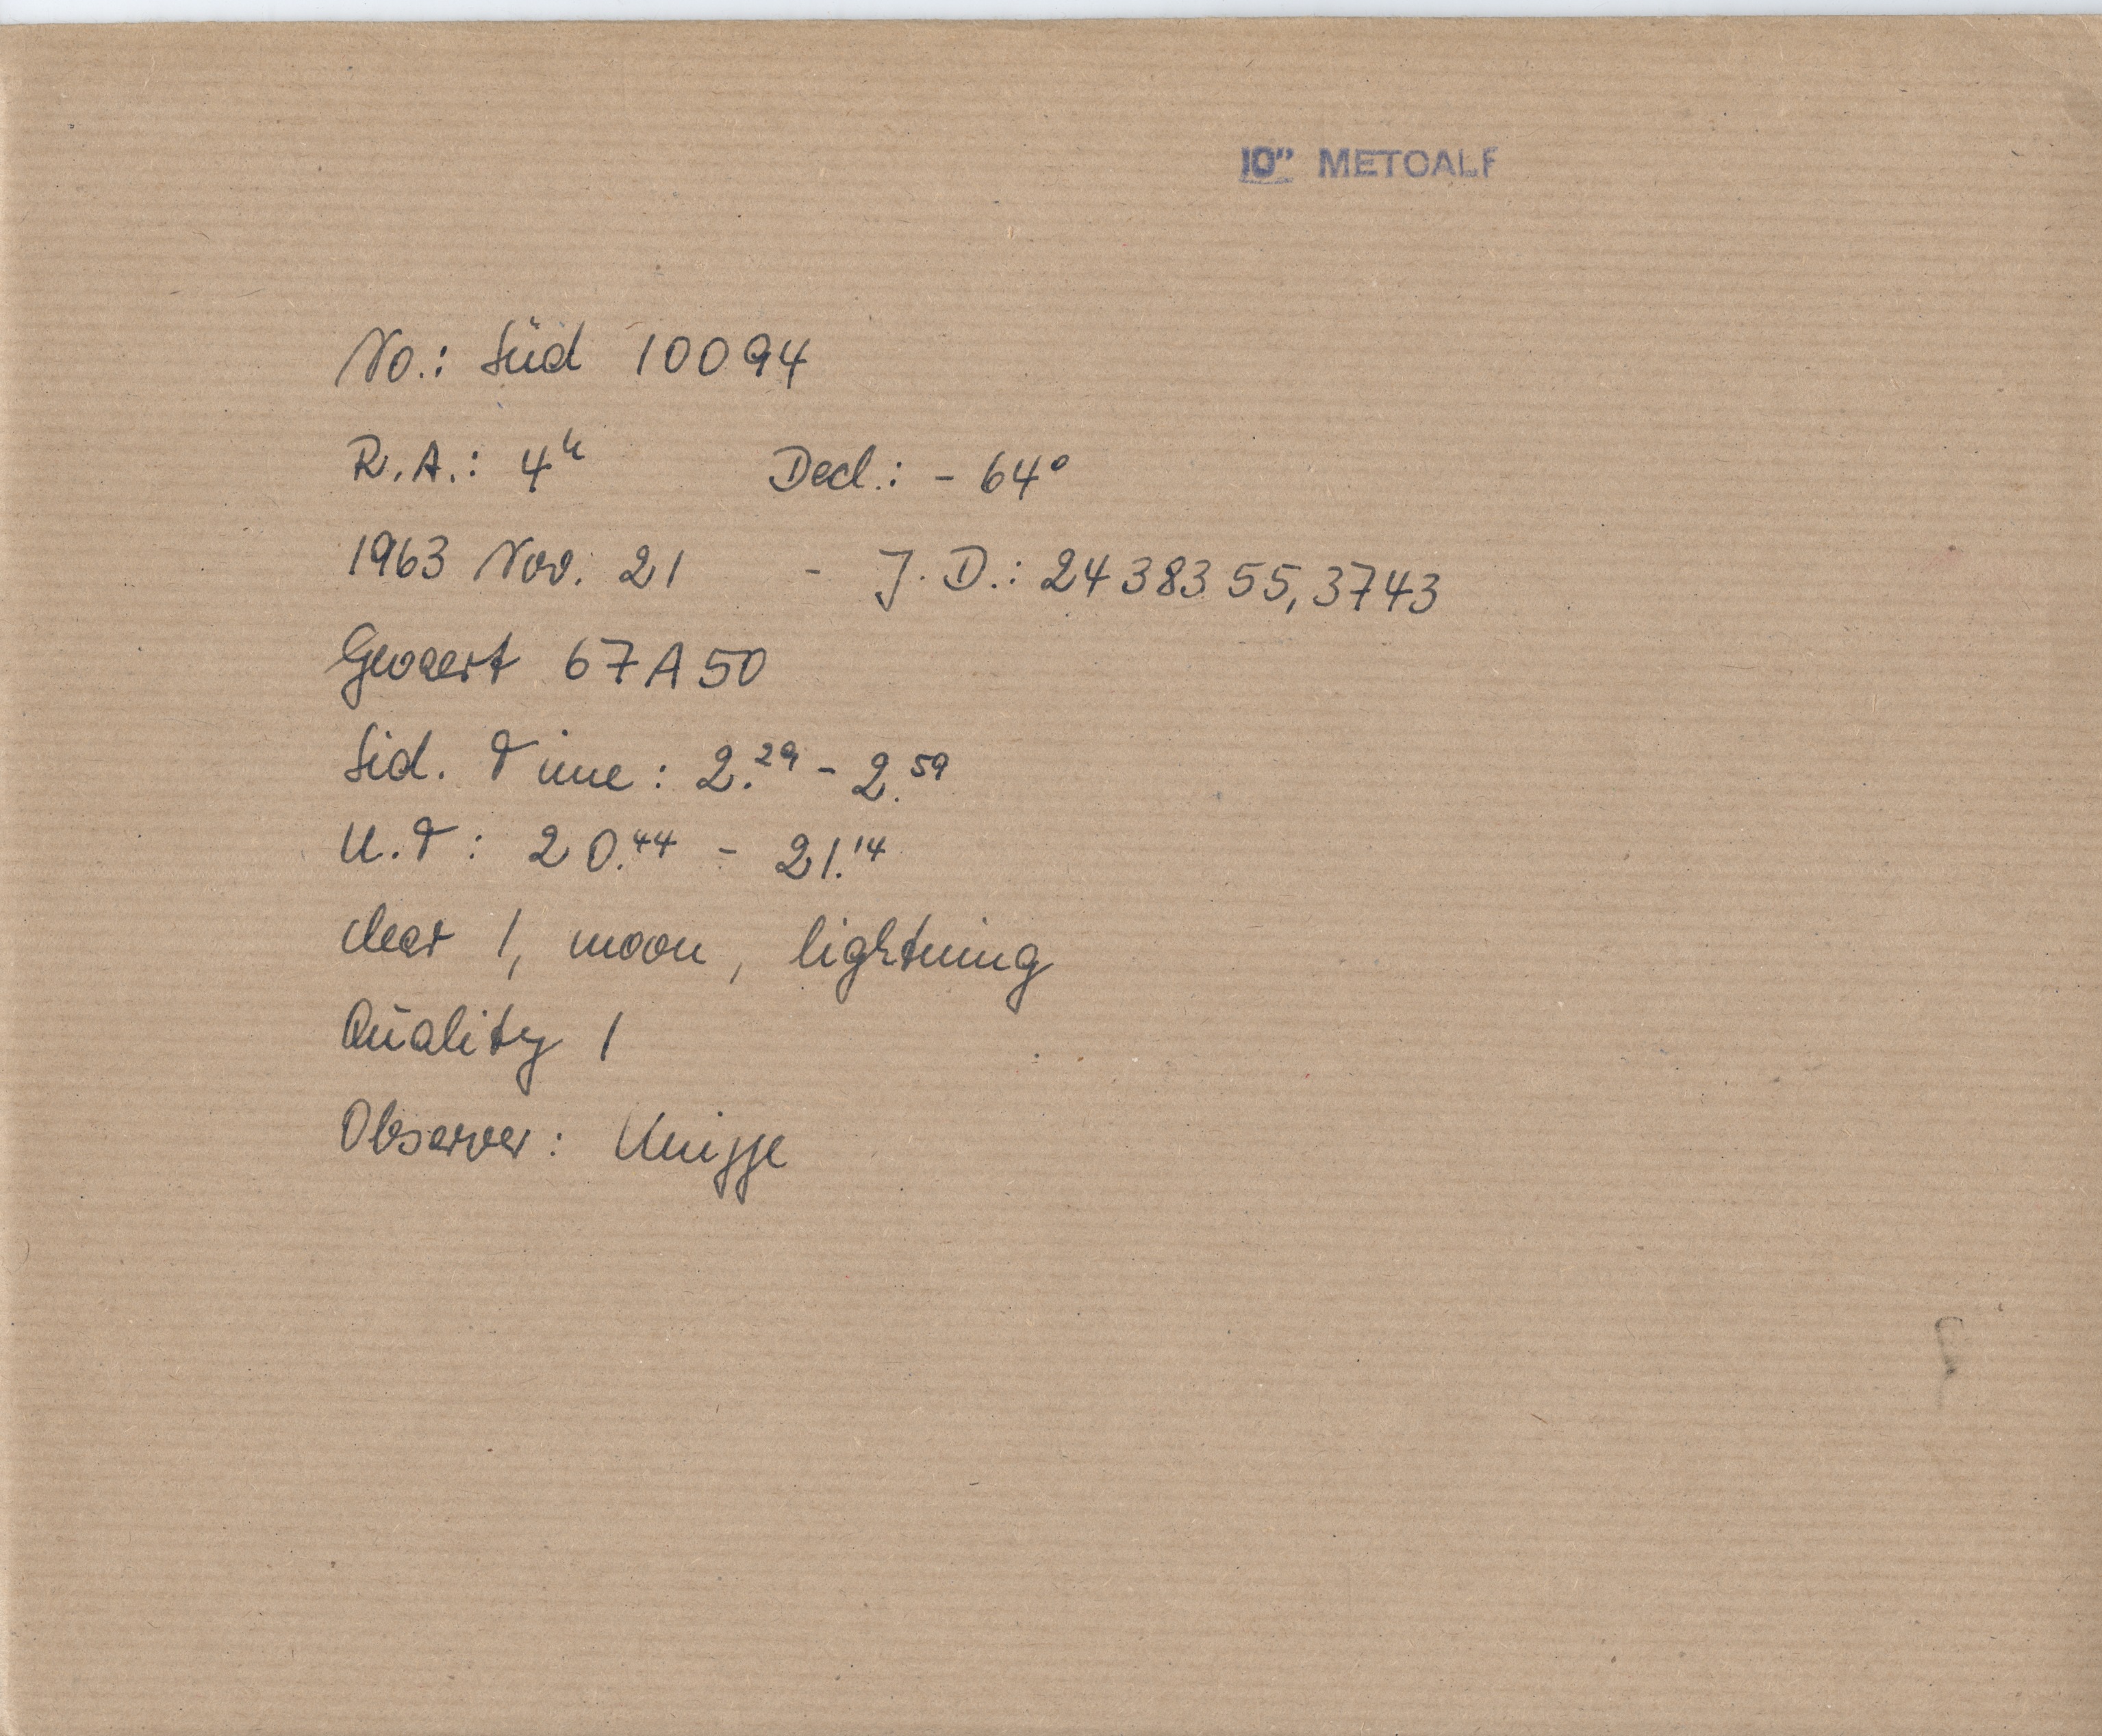 10" METCALF
No.: Süd 10094
R.A.: 4ʰ Decl.: - 64°
1963 Nov. 21 - J. D.: 24 383 55,3743
Gevaert 67 A 50
Sid. Time: 2.²⁹ - 2.⁵⁹
U.T: 20.⁴⁴ - 21.¹⁴
clear 1, moon, lightning
Quality 1
Observer: